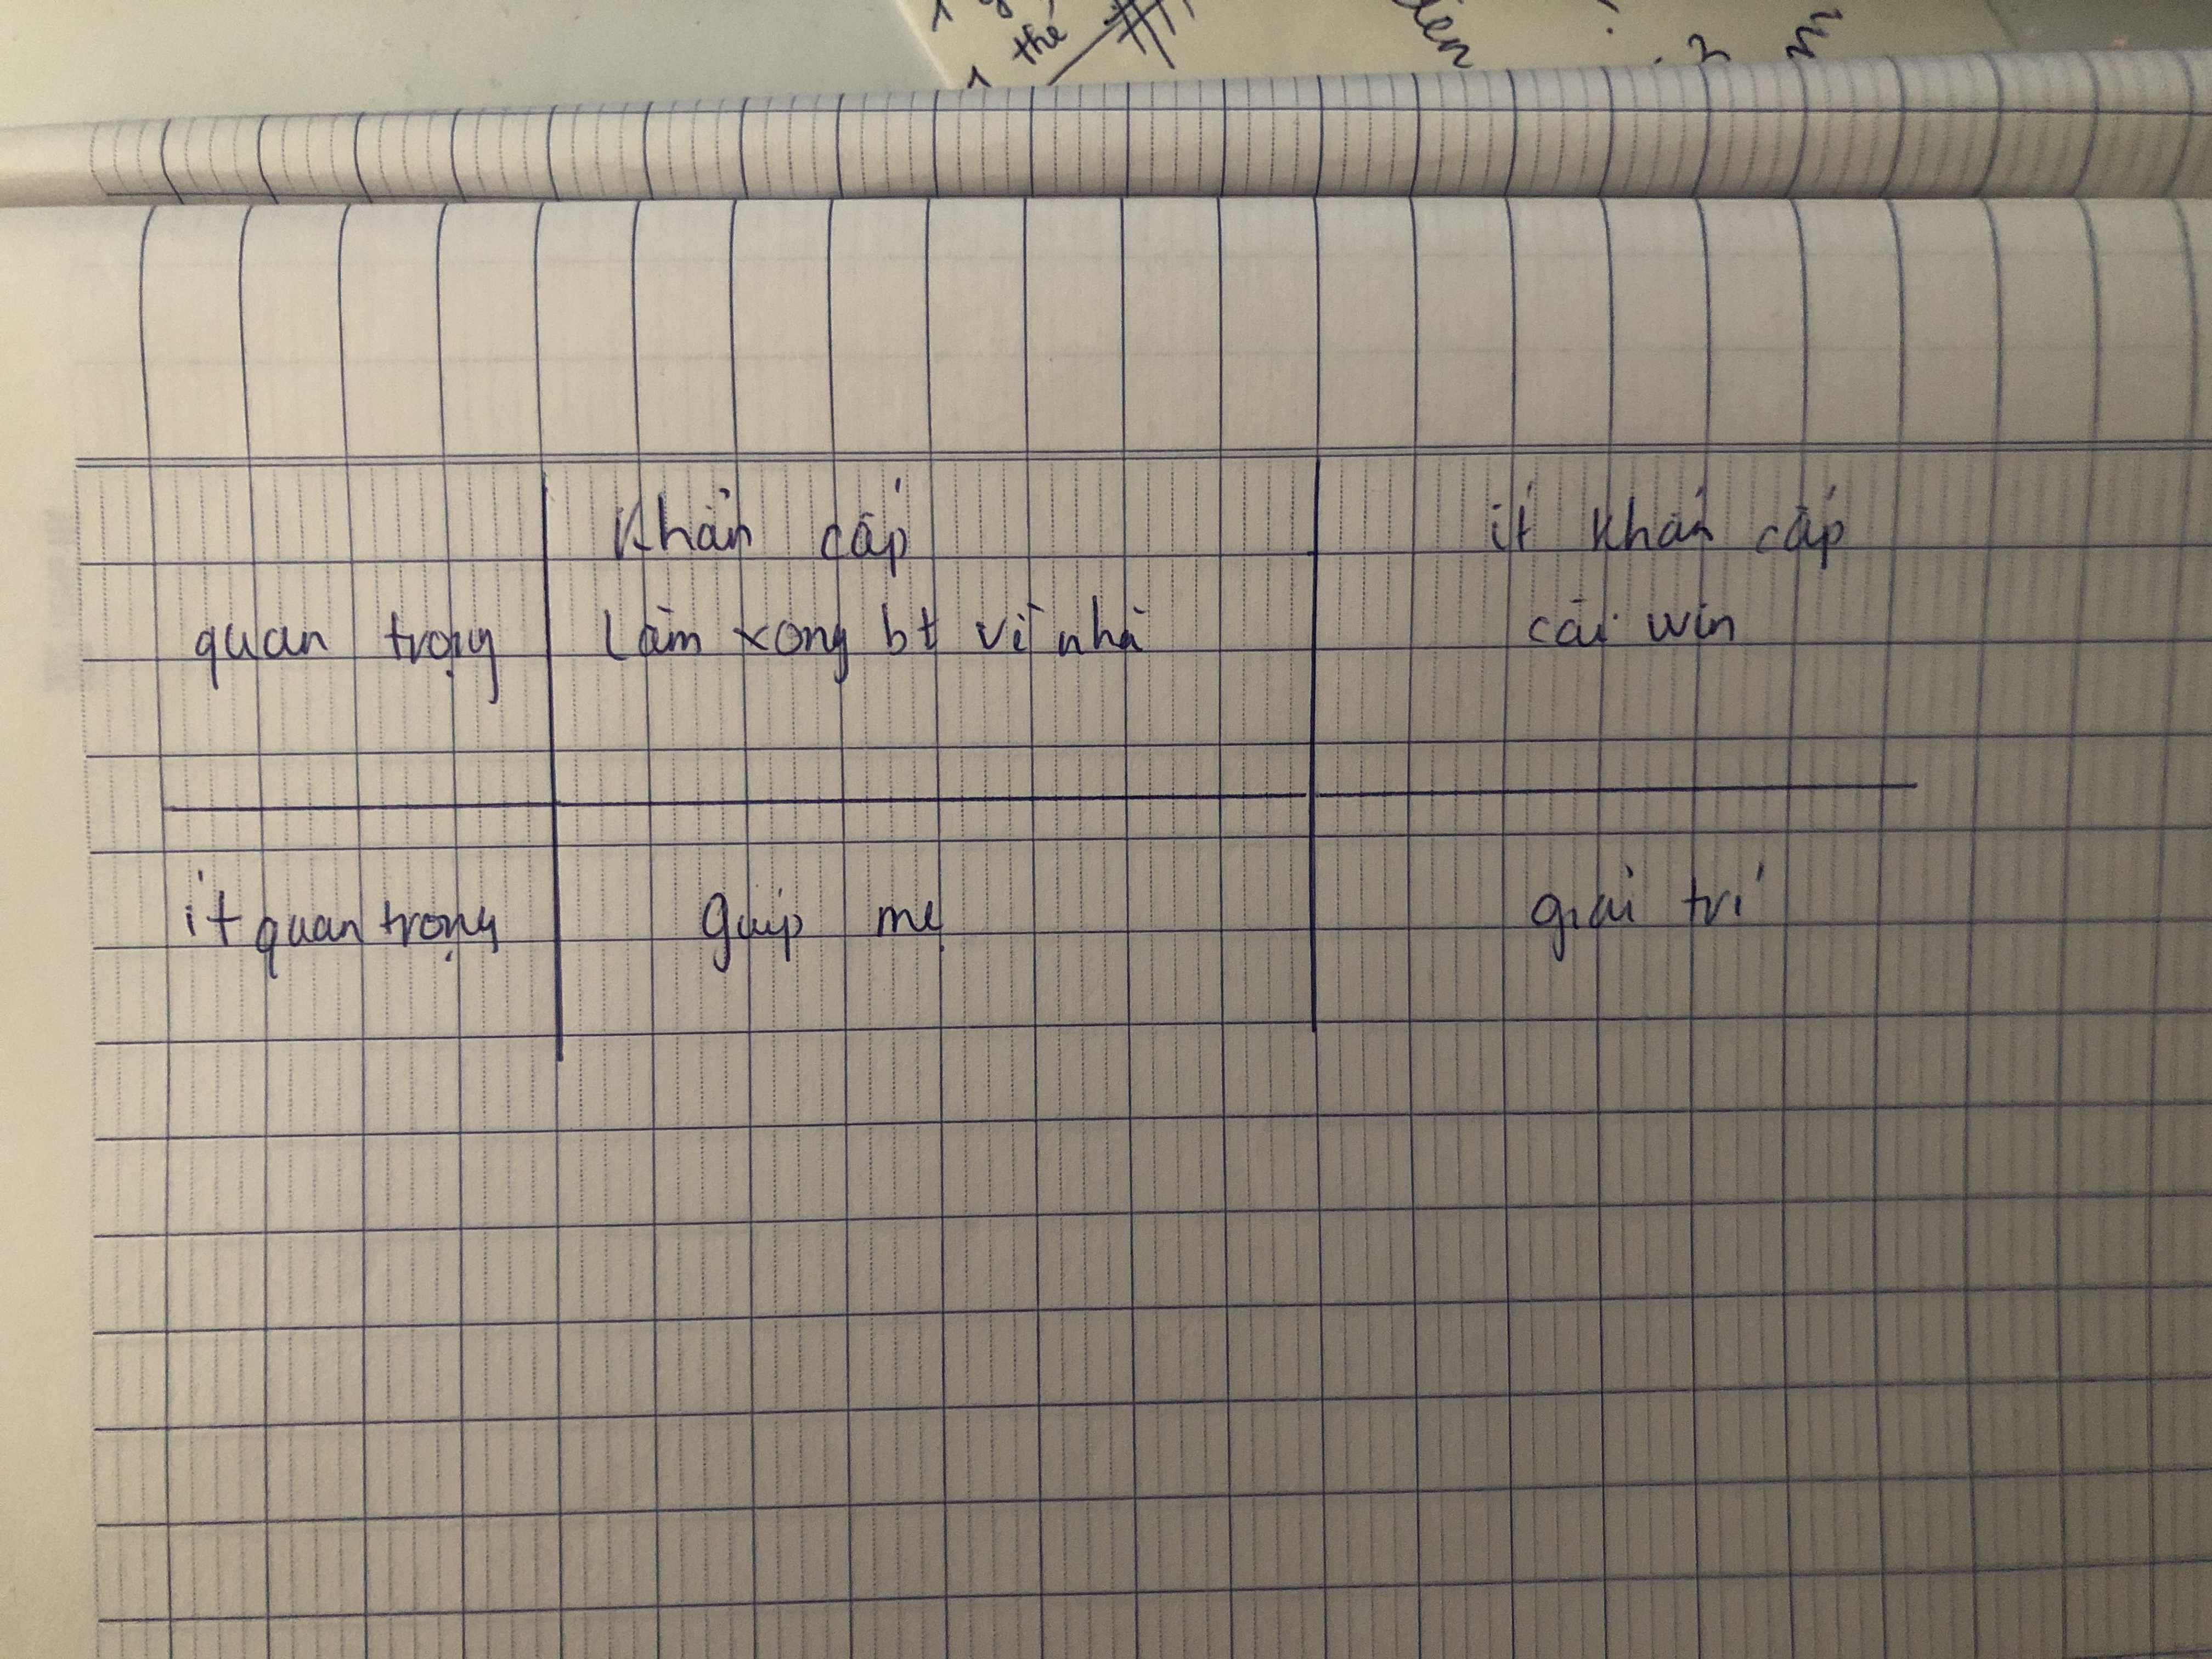 Khẩn cấp
ít khẩn cấp
quan trọng
Làm xong bt về nhà
cài win
ít quan trọng
giúp mẹ
giải trí
thế